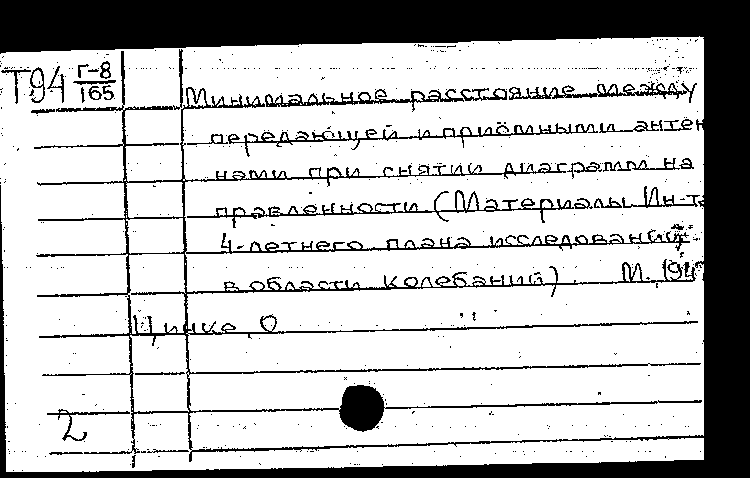 Т94 Г-8
165
Минимальное расстояние между
передающей и приёмными антен
нами при снятии диаграмм на
правленности (Материалы Ин-та
4-летнего плана исследований
в области колебаний). М., 1947
Цинке, О
2